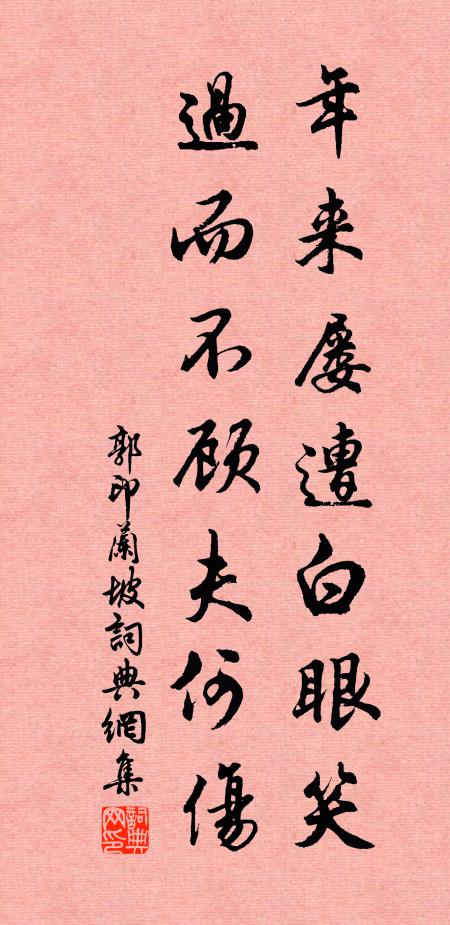 年来屡遭白眼笑
過而不顾夫何傷
郭印蘭坡詞典網集
詞典網印